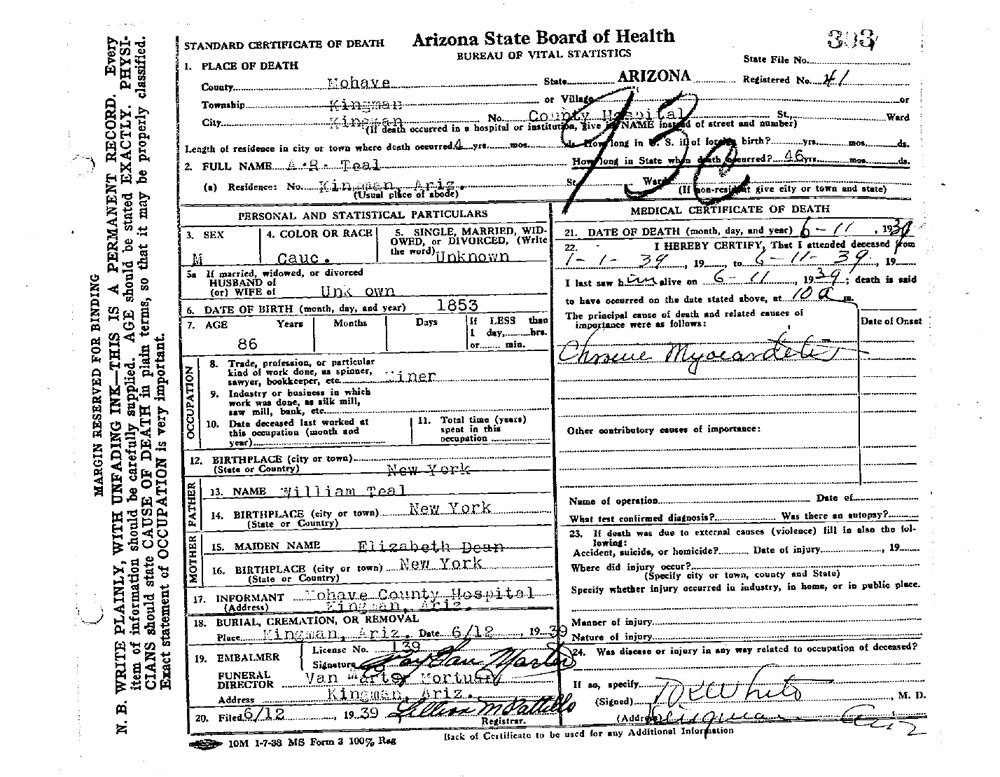 303
STANDARD CERTIFICATE OF DEATH Arizona State Board of Health
BUREAU OF VITAL STATISTICS
State File No.
1. PLACE OF DEATH
County Mohave State ARIZONA Registered No. 41
Township Kingman or Village or
City Kingman No. County Hospital St., Ward
(If death occurred in a hospital or institution, give its NAME instead of street and number)
Length of residence in city or town where death occurred 4 yrs. mos. ds. How long in U. S. if of foreign birth? yrs. mos. ds.
2. FULL NAME A.R. Teal How long in State when death occurred? 46 yrs. mos. ds.
(a) Residence: No. Kingman, Ariz. St. Ward
(Usual place of abode) (If non-resident give city or town and state)
930
PERSONAL AND STATISTICAL PARTICULARS
3. SEX 4. COLOR OR RACE 5. SINGLE, MARRIED, WIDOWED, or DIVORCED, (Write the word) Unknown
M Cauc.
5a If married, widowed, or divorced
HUSBAND of
(or) WIFE of Unk own
6. DATE OF BIRTH (month, day, and year) 1853
7. AGE Years Months Days If LESS than 1 day, hrs. or min.
86
OCCUPATION
8. Trade, profession, or particular
kind of work done, as spinner,
sawyer, bookkeeper, etc. Miner
9. Industry or business in which
work was done, as silk mill,
saw mill, bank, etc.
10. Date deceased last worked at
this occupation (month and
year)
11. Total time (years)
spent in this
occupation
12. BIRTHPLACE (city or town)
(State or Country) New York
FATHER
13. NAME William Teal
14. BIRTHPLACE (city or town) New York
(State or Country)
MOTHER
15. MAIDEN NAME Elizabeth Dean
16. BIRTHPLACE (city or town) New York
(State or Country)
17. INFORMANT Mohave County Hospital
(Address) Kingman, Ariz.
18. BURIAL, CREMATION, OR REMOVAL
Place Kingman, Ariz. Date 6/12, 1939
19. EMBALMER License No. 139
Signature Van Marter
FUNERAL
DIRECTOR Van Marter Mortuary
Address Kingman, Ariz.
20. Filed 6/12, 1939 Lillian M Pattillo
Registrar.
MEDICAL CERTIFICATE OF DEATH
21. DATE OF DEATH (month, day, and year) 6-11, 1939
22. I HEREBY CERTIFY, That I attended deceased from
1-1-39, 19 to 6-11-39, 19
I last saw him alive on 6-11, 1939; death is said
to have occurred on the date stated above, at 10 a m.
The principal cause of death and related causes of
importance were as follows: Date of Onset
Chronic Myocardetis
Other contributory causes of importance:
Name of operation Date of
What test confirmed diagnosis? Was there an autopsy?
23. If death was due to external causes (violence) fill in also the following:
Accident, suicide, or homicide? Date of injury, 19
Where did injury occur?
(Specify city or town, county and State)
Specify whether injury occurred in industry, in home, or in public place.
Manner of injury
Nature of injury
24. Was disease or injury in any way related to occupation of deceased?
If so, specify
(Signed) White, M. D.
(Address) Kingman Ariz
10M 1-7-38 MS Form 3 100% Rag Back of Certificate to be used for any Additional Information
MARGIN RESERVED FOR BINDING
N. B. WRITE PLAINLY, WITH UNFADING INK—THIS IS A PERMANENT RECORD. Every
item of information should be carefully supplied. AGE should be stated EXACTLY. PHYSI-
CIANS should state CAUSE OF DEATH in plain terms, so that it may be properly classified.
Exact statement of OCCUPATION is very important.